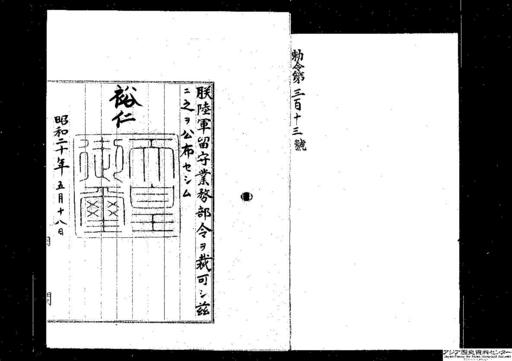 勅令第三百十三號
朕陸軍留守業務部令ヲ裁可シ茲
ニ之ヲ公布セシム
裕仁
天皇
御璽
昭和二十年五月十八日
アジア歴史資料センター